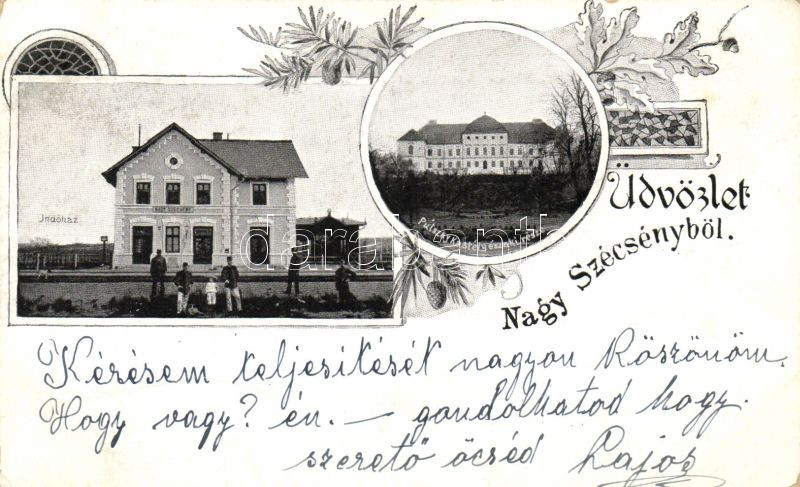 Indóház
NAGY SZÉCSÉNY
Üdvözlet
Nagy Szécsényből.
darabanth
Kérésem teljesitését nagyon Köszönöm.
Hogy vagy? én. — gondolhatod hogy.
szerető öcséd Lajos